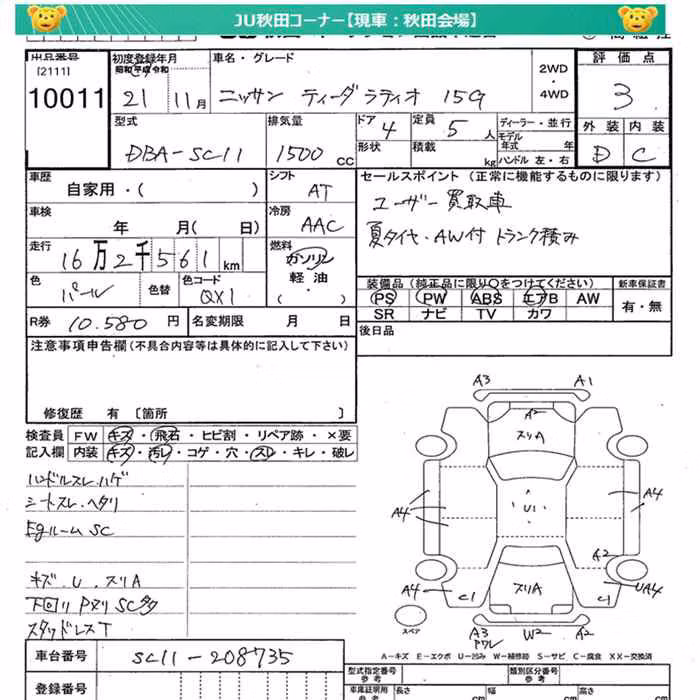 JU秋田コーナー【現車：秋田会場】
出品番号
[2111]
10011
初度登録年月
昭和 平成 令和
21 11月
車名・グレード
ニッサン ティーダラティオ 15G
2WD
・
4WD
評価点
3
外装 内装
D C
型式
DBA-SC11
排気量
1500 CC
ドア 4
形状
定員 5人
積載 kg
ディーラー・並行
モデル年式 年
ハンドル 左・右
車歴
自家用・( )
シフト
AT
車検
年 月( 日)
冷房
AAC
走行
16万2千561km
燃料
ガソリン
軽・油
・( )
色
パール
色替
色コード
QX1
R券 10.580円
名変期限 月 日
セールスポイント (正常に機能するものに限ります)
ユーザー買取車
夏タイヤ・AW付 トランク積み
装備品 (純正品に限り○をつけてください)
PS PW ABS エアB AW
SR ナビ TV カワ
新車保証書
有・無
後日品
注意事項申告欄(不具合内容等は具体的に記入して下さい)
修復歴 有 〔箇所 〕
検査員記入欄
FW キズ・飛石・ヒビ割・リペア跡・×要
内装 キズ・汚レ・コゲ・穴・スレ・キレ・破レ
ハンドルスレ.ハゲ
シートスレ.ヘタリ
Egルーム SC
キズ.U.スリA
下回リ Pヌリ SC多タ
スタッドレスT
A3 A1
A2
スリA
A4 U1 A4
A2
A4 C1 スリA C1 UA4
スペア
A3 W2 A2
ワレ
A－キズ E－エクボ U－凹み W－補修跡 S－サビ C－腐食 XX－交換済
車台番号
SC11-208735
登録番号
型式指定番号
参考
類別区分番号
参考
車庫証明用
参考
長さ cm
幅 cm
高さ cm